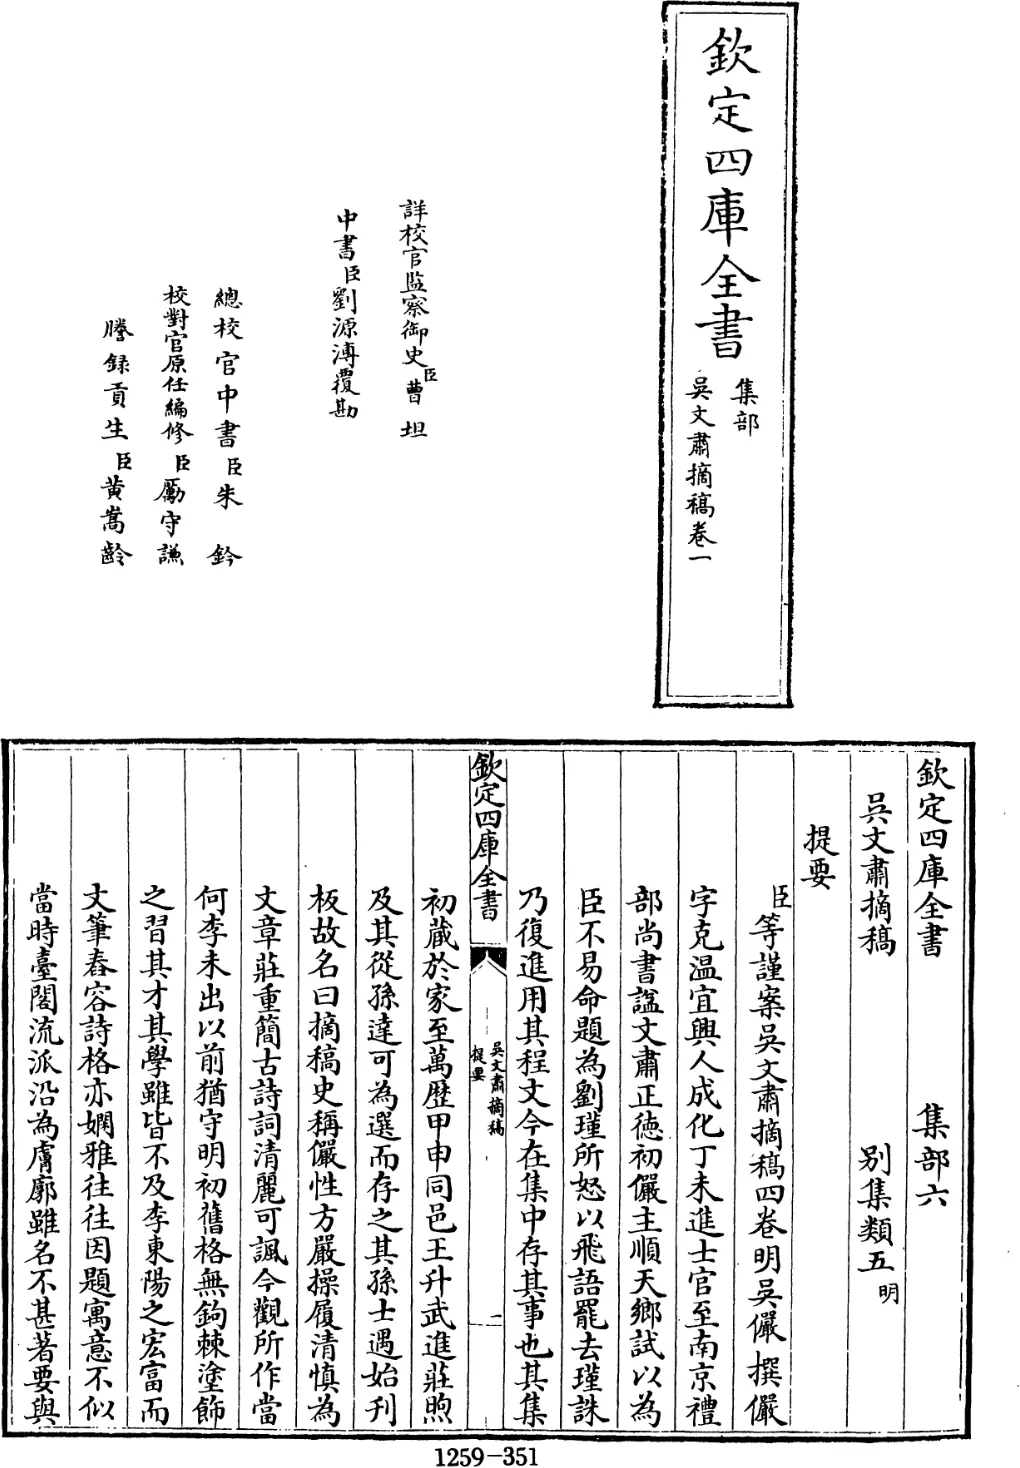 欽定四庫全書
集部
吳文肅摘稿卷一
詳校官監察御史臣曹坦
中書臣劉源溥覆勘
總校官中書臣朱鈐
校對官原任編修臣勵守謙
謄錄貢生臣黃嵩齡
欽定四庫全書 集部六
吳文肅摘稿 別集類五明
提要
臣等謹案吳文肅摘稿四卷明吳儼撰儼
字克温宜興人成化丁未進士官至南京禮
部尚書諡文肅正徳初儼主順天鄉試以為
臣不易命題為劉瑾所怒以飛語罷去瑾誅
乃復進用其程文今在集中存其事也其集
欽定四庫全書
吳文肅摘稿
提要
一
初蔵於家至萬歴甲申同邑王升武進莊煦
及其從孫達可為選而存之其孫士遇始刊
板故名曰摘稿史稱儼性方嚴操履清慎為
文章莊重簡古詩詞清麗可諷今觀所作當
何李未出以前猶守明初舊格無鉤棘塗飾
之習其才其學雖皆不及李東陽之宏富而
文筆舂容詩格亦嫻雅往往因題寓意不似
當時臺閣流派沿為膚廓雖名不甚著要與
1259-351